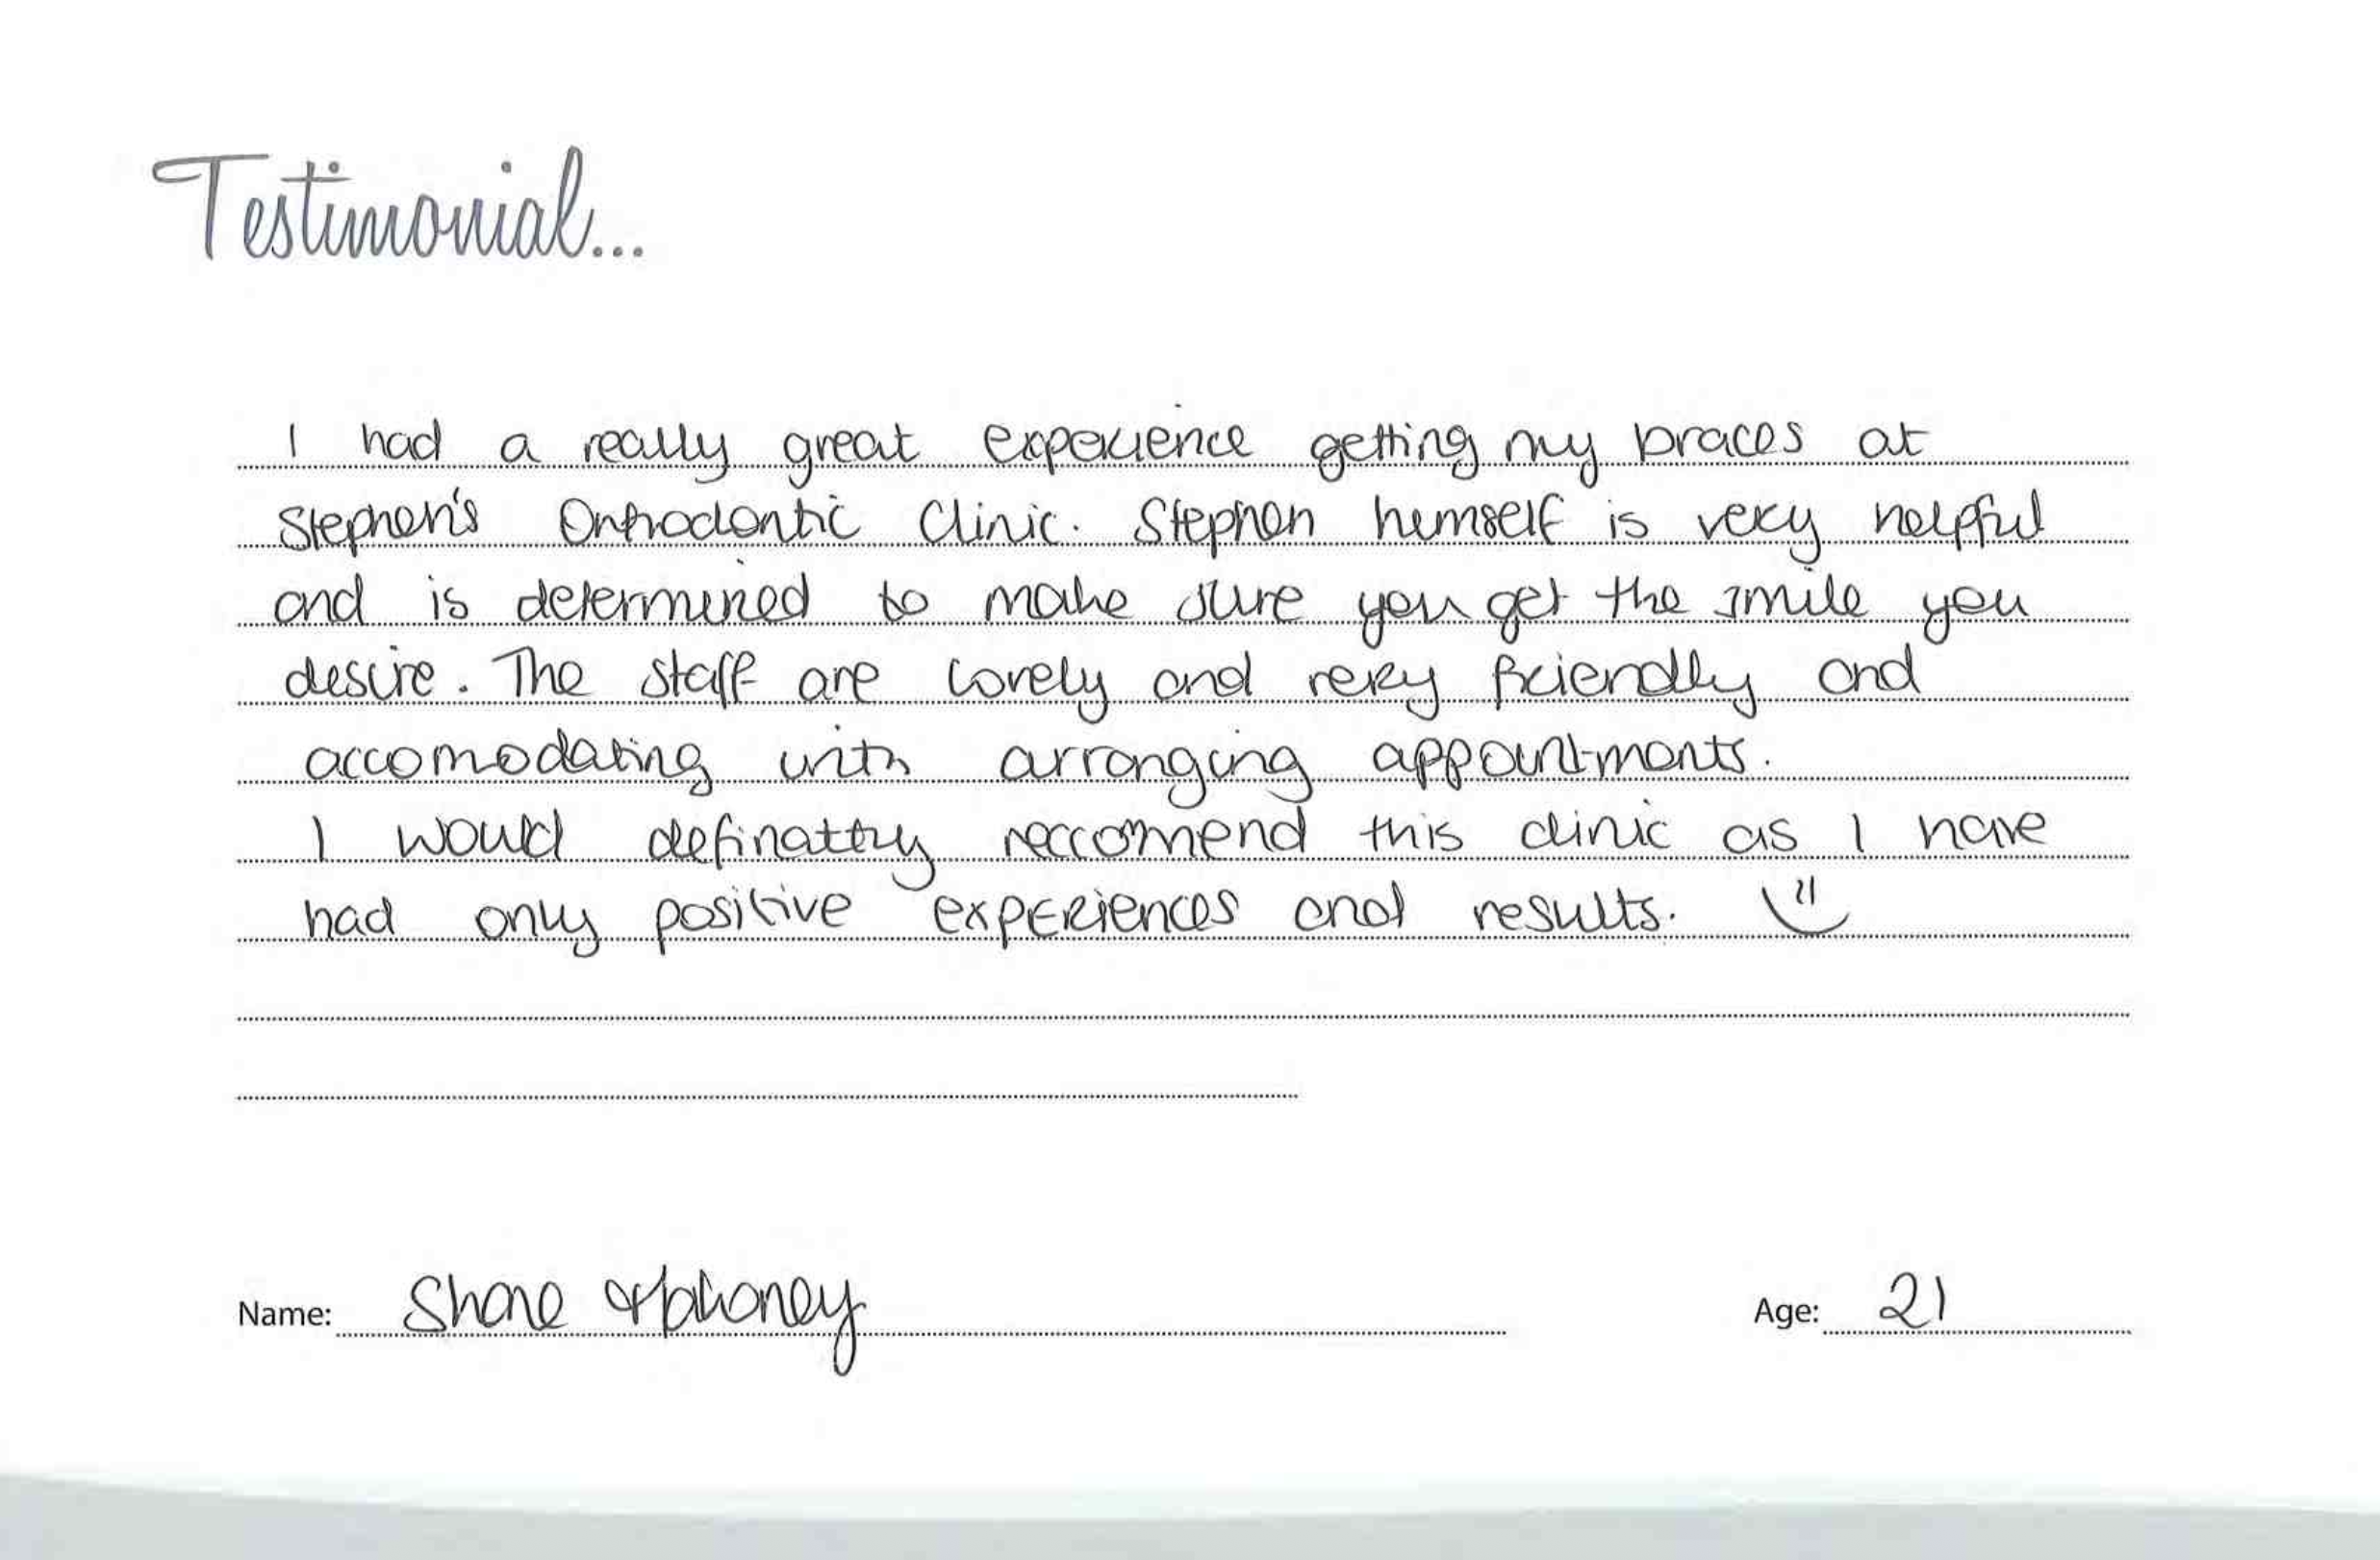 Testimonial...
I had a really great experience getting my braces at
Stephen's Orthodontic Clinic. Stephen himself is very helpful
and is determined to make sure you get the smile you
desire. The staff are lovely and very friendly and
accomodating with arranging appointments.
I would definattly reccomend this clinic as I have
had only positive experiences and results. =)
Name: Shane Mahoney Age: 21